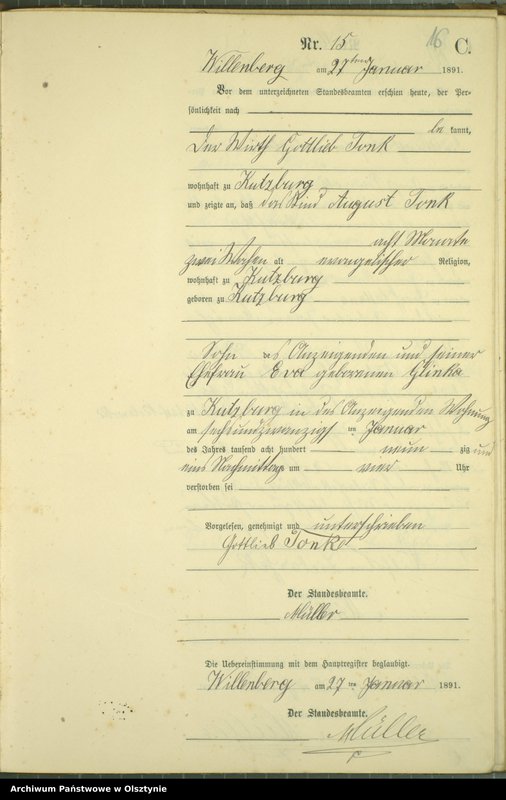 16
Nr. 15 C.
Willenberg am 27ten Januar 1891.
Vor dem unterzeichneten Standesbeamten erschien heute, der Per-
sönlichkeit nach
be kannt,
der Wirth Gottlieb Tonk
wohnhaft zu Kutzburg
und zeigte an, daß das Kind August Tonk
acht Monate
zwei Wochen alt evangelischer Religion,
wohnhaft zu Kutzburg
geboren zu Kutzburg
Sohn des Anzeigenden und seiner
Ehefrau Eva geborenen Glinka
zu Kutzburg in des Anzeigenden Wohnung
am sechsundzwanzigsten Januar
des Jahres tausend acht hundert neun zig und
eins Nachmittags um vier Uhr
verstorben sei
Vorgelesen, genehmigt und unterschrieben
Gottlieb Tonk
Der Standesbeamte.
Müller
Die Uebereinstimmung mit dem Hauptregister beglaubigt.
Willenberg am 27ten Januar 1891.
Der Standesbeamte.
Müller
Archiwum Państwowe w Olsztynie